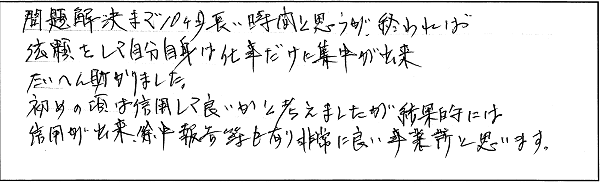 問題解決まで10ヶ月長い時間と思うが、終われば
依頼をして自分自身は仕事だけに集中が出来
たいへん助かりました。
初めの頃は信用して良いかと考えましたが結果的には
信用が出来、途中報告等もあり非常に良い事業所と思います。